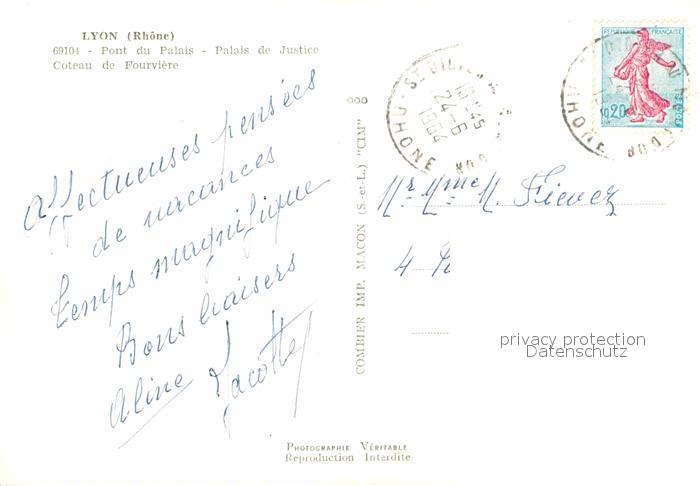 LYON (Rhône)
69104 - Pont du Palais - Palais de Justice
Coteau de Fourvière
Affectueuses pensées
de vacances
temps magnifique
Bons baisers
Aline Lacotte
COMBIER IMP. MACON (S.-et-L.) "CIM"
10 H45
24-6
1964
RHONE
REPUBLIQUE FRANÇAISE
0,20
POSTES
RHONE
Mr Mme M. Fievez
4 R
privacy protection
Datenschutz
PHOTOGRAPHIE VÉRITABLE
Reproduction Interdite